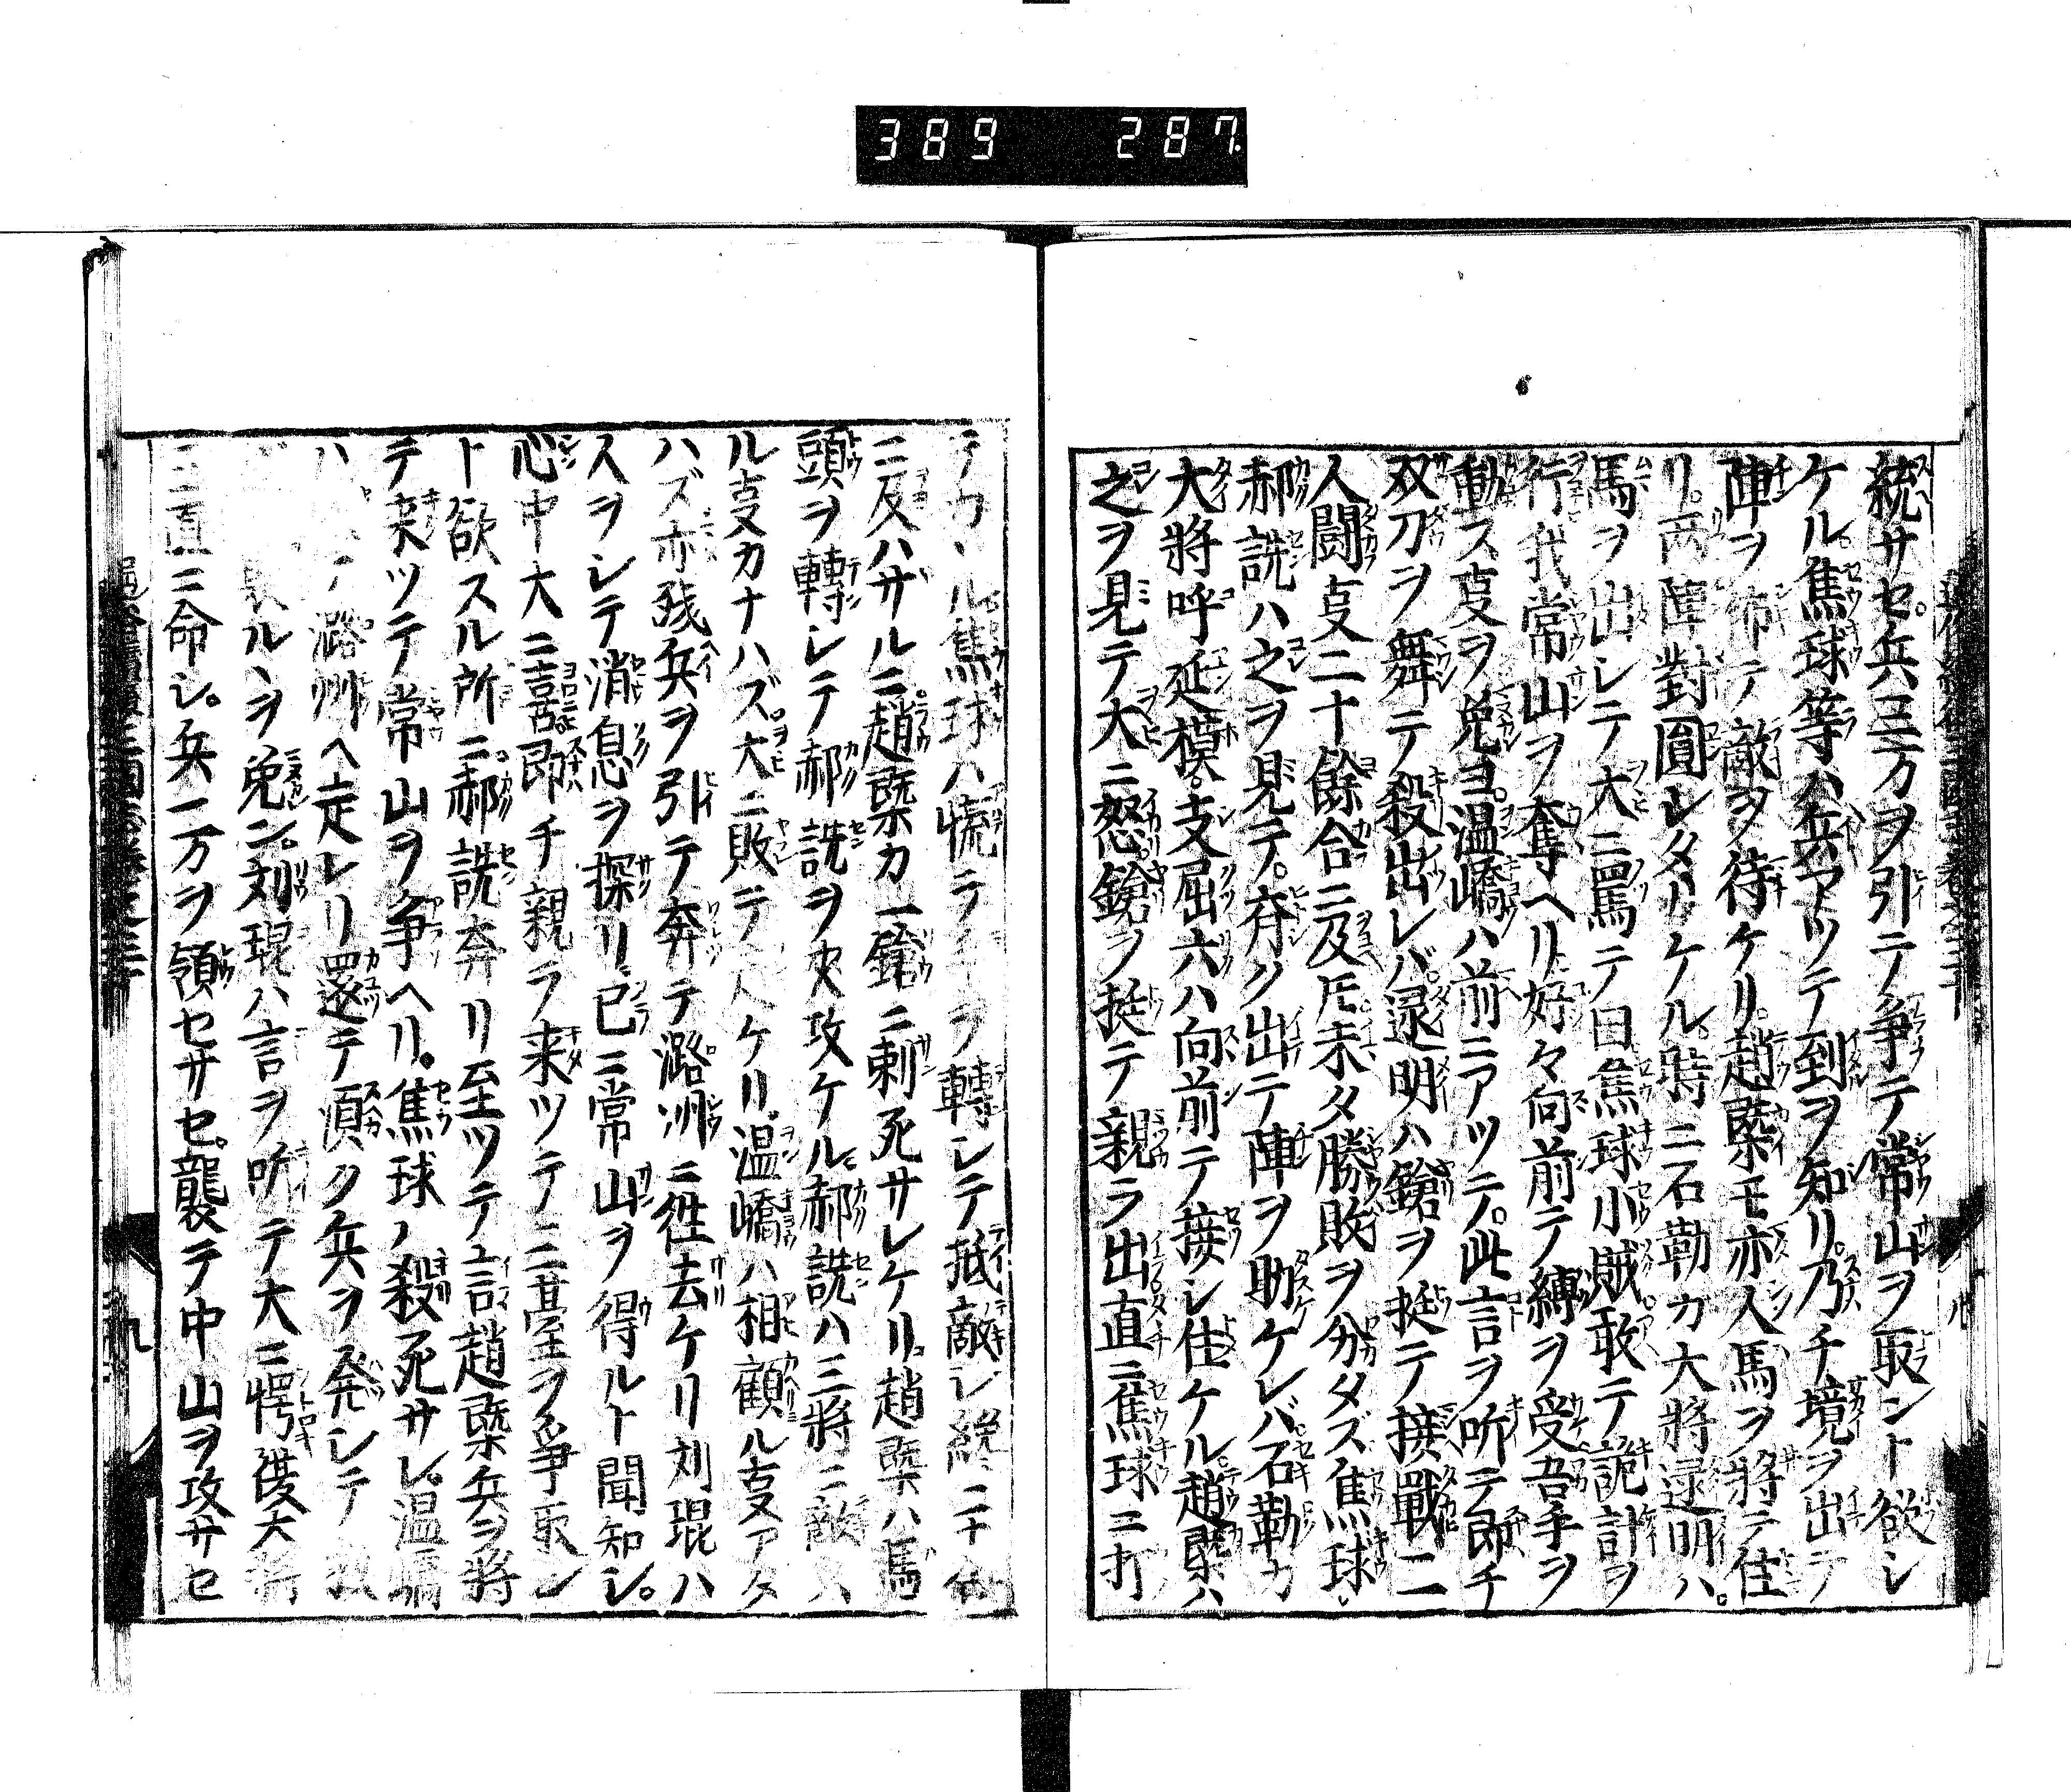 389 287.
統サセ。兵三万ヲ引テ争テ常山ヲ取ント欲シ
ケル。焦球等ハ兵アツテ到ヲ知リ。乃チ境ヲ出テ
陣ヲ布テ敵ヲ待ケリ。趙槩モ亦人馬ヲ將テ住
リ。両陣對圓シタリケル。時ニ石勒カ大將逯明ハ。
馬ヲ出シテ大ニ罵テ曰焦球小賊敢テ詭計ヲ
行我常山ヲ奪ヘリ好々向前テ縛ヲ受吾手ヲ
動ス叓ヲ免ヨ。温嶠ハ前ニアツテ。此言ヲ听テ即チ
双刀ヲ舞テ殺出レバ。逯明ハ鎗ヲ挺テ接戰二
人闘叓二十餘合ニ及𪜈未タ勝敗ヲ分タズ焦球。
郝詵ハ之ヲ見テ。斉ク出テ陣ヲ助ケレバ。石勒カ
大將呼延模。支屈六ハ向前テ接シ住ケル。趙槩ハ
之ヲ見テ大ニ怒。鎗ヲ挺テ親ラ出直ニ焦球ニ打
テカヽル焦球ハ慌テ ヲ轉シテ抵敵シ終ニ十合
ニ及ハサルニ。趙槩カ一鎗ニ刺死サレケリ。趙槩ハ馬
頭ヲ轉シテ郝詵ヲ夾攻ケル。郝詵ハ三將ニ敵ス
ル叓カナハズ。大ニ敗テ ケリ。温嶠ハ相顧ル叓アタ
ハズ亦残兵ヲ引テ奔テ潞州ニ徃去ケリ刘琨ハ
スヲシテ消息ヲ探リ已ニ常山ヲ得ルト聞知シ。
心中大ニ喜即チ親ラ来ツテ三臺ヲ爭取ン
ト欲スル所ニ。郝詵奔リ至ツテ言趙槩兵ヲ將
テ来ツテ常山ヲ争ヘリ。焦球ノ殺死サレ。温嶠
ハ 潞州ヘ走レリ還テ湏ク兵ヲ発シテ 救
ルヽヲ免ン。刘琨ハ言ヲ听テ大ニ愕復大將
ニ直ニ命シ。兵一万ヲ領セサセ。襲テ中山ヲ攻サセ